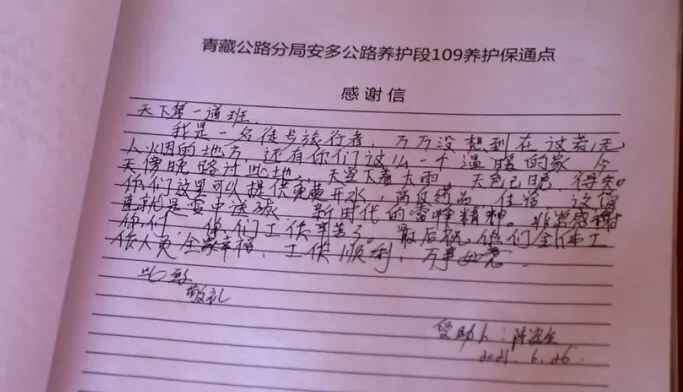 青藏公路分局安多公路养护段109养护保通点
感谢信
天下第一道班
我是一名徒步旅行者，万万没想到在这若无
人烟的地方，还有你们这么一个温暖的家，今
天傍晚路过此地，天空下着大雨，天色已晚，得知
你们这里可以提供免费开水，高反药品，住宿，这便
真的是雪中送碳，新时代的雷锋精神。非常感谢
你们，你们工作辛苦了。最后祝你们全体工
作人员全家幸福，工作顺利，万事如意
此致
敬礼
受助人：陈
2021.6.26